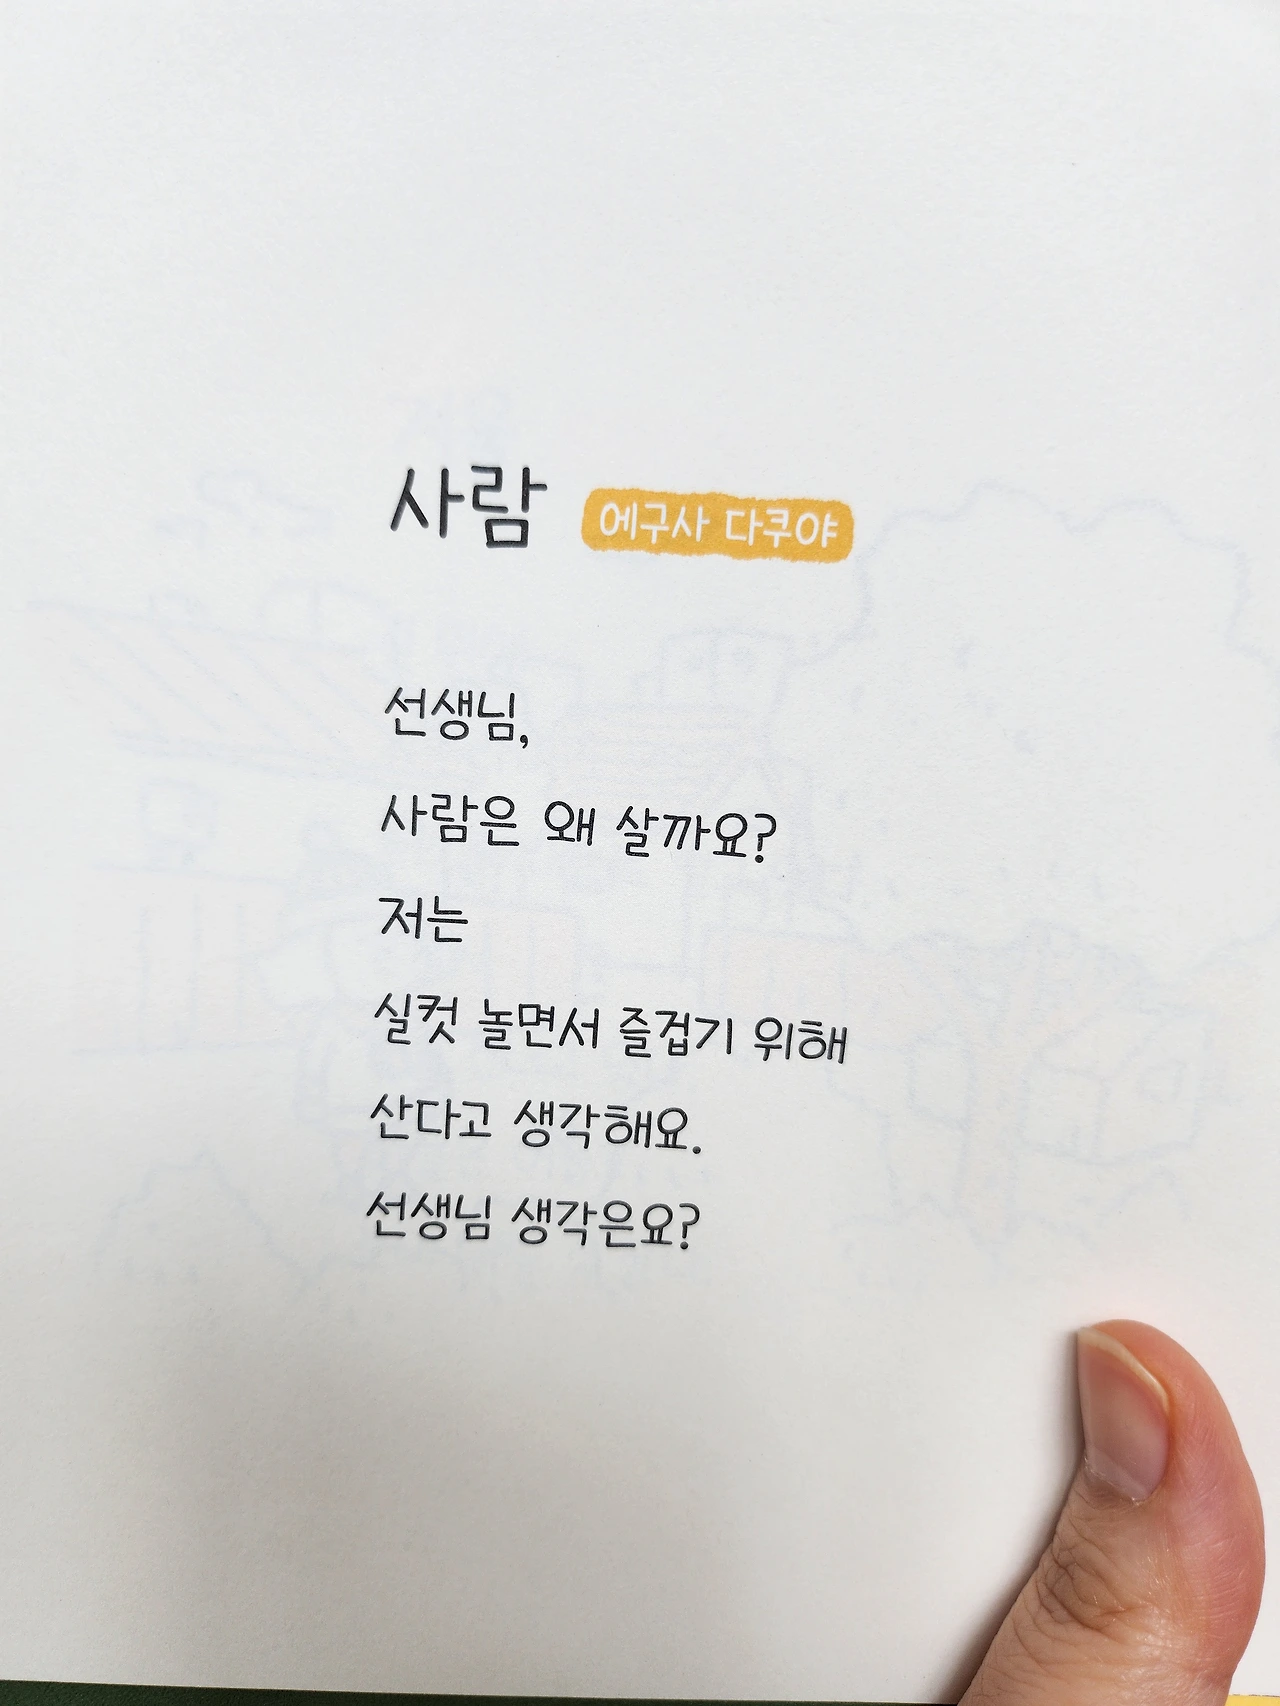 사람 에구사 다쿠야
선생님,
사람은 왜 살까요?
저는
실컷 놀면서 즐겁기 위해
산다고 생각해요.
선생님 생각은요?